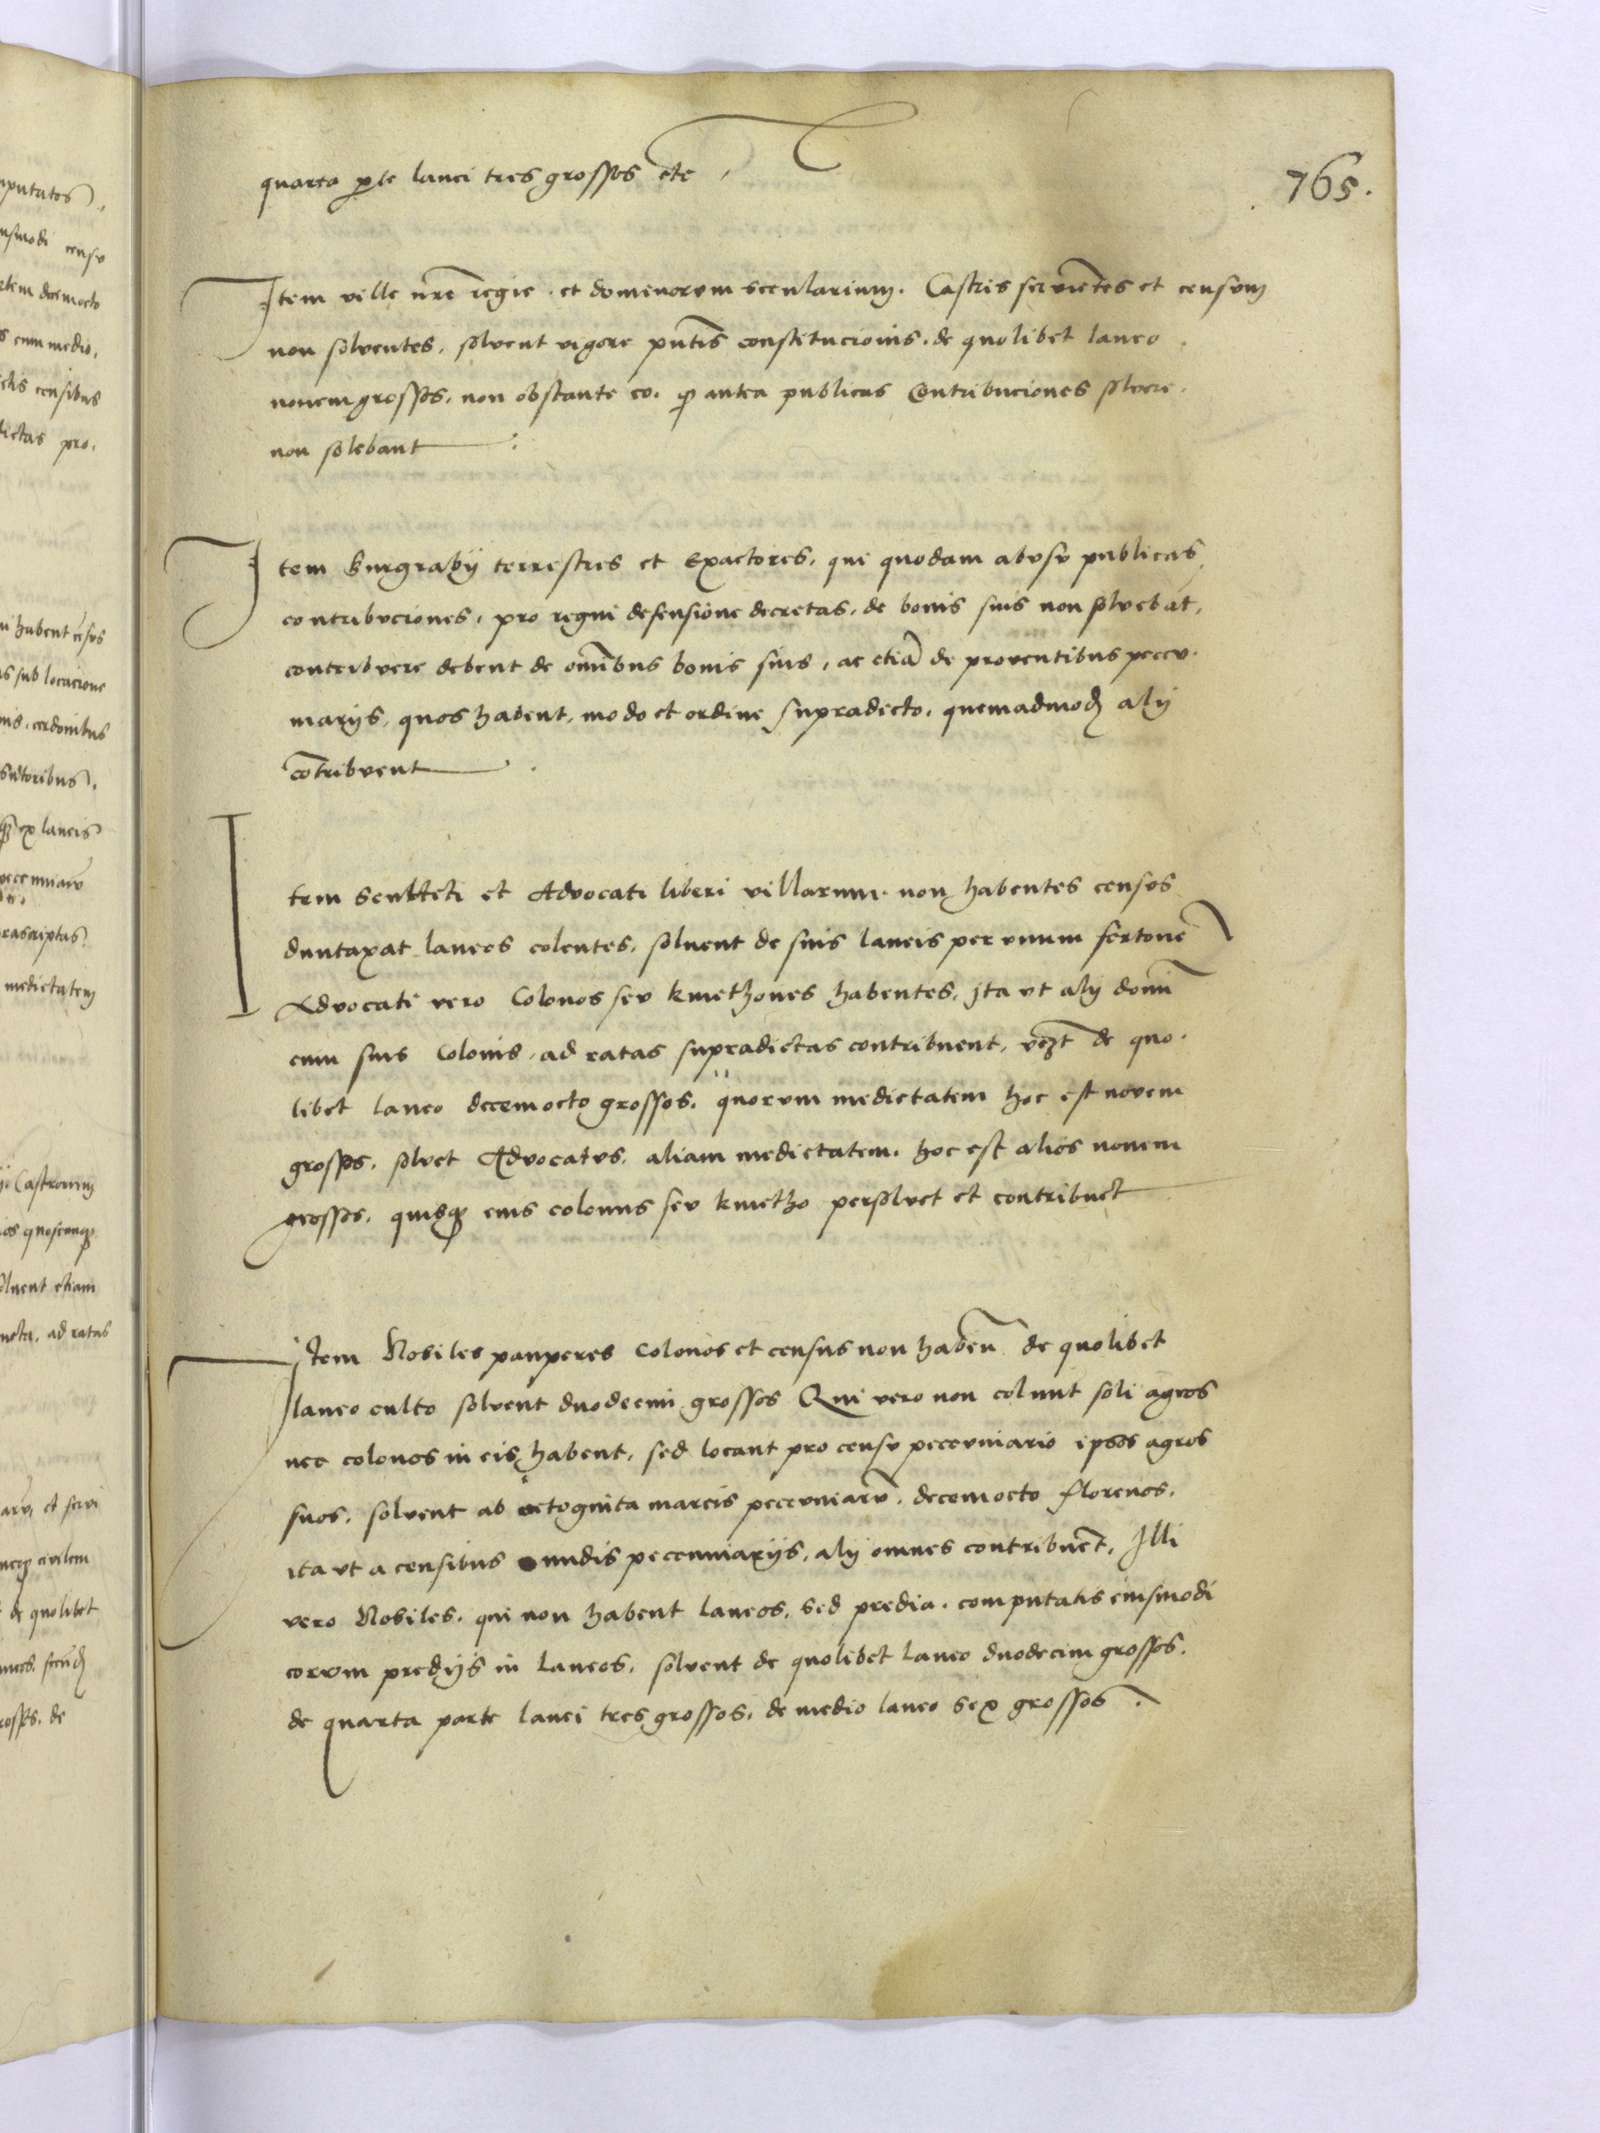 765.
quarta p̱te lanei tres grossos etc
Item ville nr̄e regie. et dominorum secularium. Castris servientes et censum
non solventes, solvent vigore pn̄tis constitucionis. de quolibet laneo
novem grossos, non obstante eo. q̱ antea publicas Contribuciones solvere
non solebant
Item Burgrabij terrestres et Exactores, qui quodam abusu publicas
contribuciones, pro regni defensione decretas, de bonis suis non solvebāt,
contribuere debent de om̄ibus bonis suis, ac etiā de proventibus pecu.
niarijs, quos habent, modo et ordine supradicto, quemadmodū alij
cōtribuent
Item Sculteti et Advocati liberi villarum non habentes censvs
duntaxat laneos colentes, solvent de suis laneis per vnum fertonē
Advocati vero Colonos sev kmethones habentes, Jta vt alij domī
cum suis Colonis, ad ratas supradictas contribuent, vez̄t de quo.
libet laneo decemocto grossos, quorum medietatem hoc est novem
grossos, solvet Advocatvs, aliam medietatem, hoc est alios novem
grossos, quisq̱ eius colonus sev kmetho persolvet et contribuet
Item Nobiles pauperes Colonos et census non habeñ de quolibet
laneo culto solvent duodecim grossos Qui vero non colunt soli agros
nec colonos in eis habent, sed locant pro censv pecvniario ipsos agros
suos, solvent ab octoginta marcis pecvniarū, decemocto florenos,
ita vt a censibus nudis pecuniarijs, alij omnes contribuēt, Illi
vero Nobiles, qui non habent Laneos, sed predia, computatis eiusmodi
eorum predijs in Laneos, solvent de quolibet Laneo duodecim grossos,
de quarta parte lanei tres grossos, de medio laneo sex grossos.